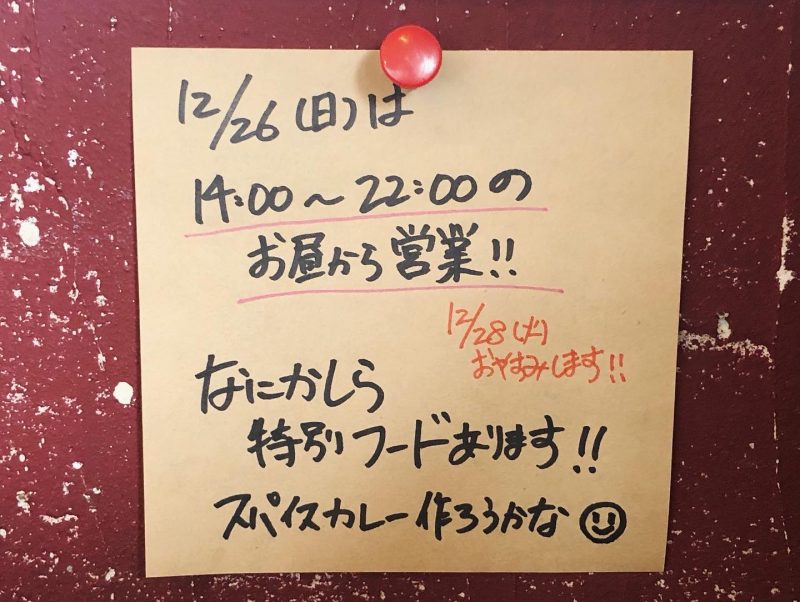 12/26(日)は
14:00〜22:00の
お昼から営業!!
12/28(火)
おやすみします!!
なにかしら
特別フードあります!!
スパイスカレー作ろうかな